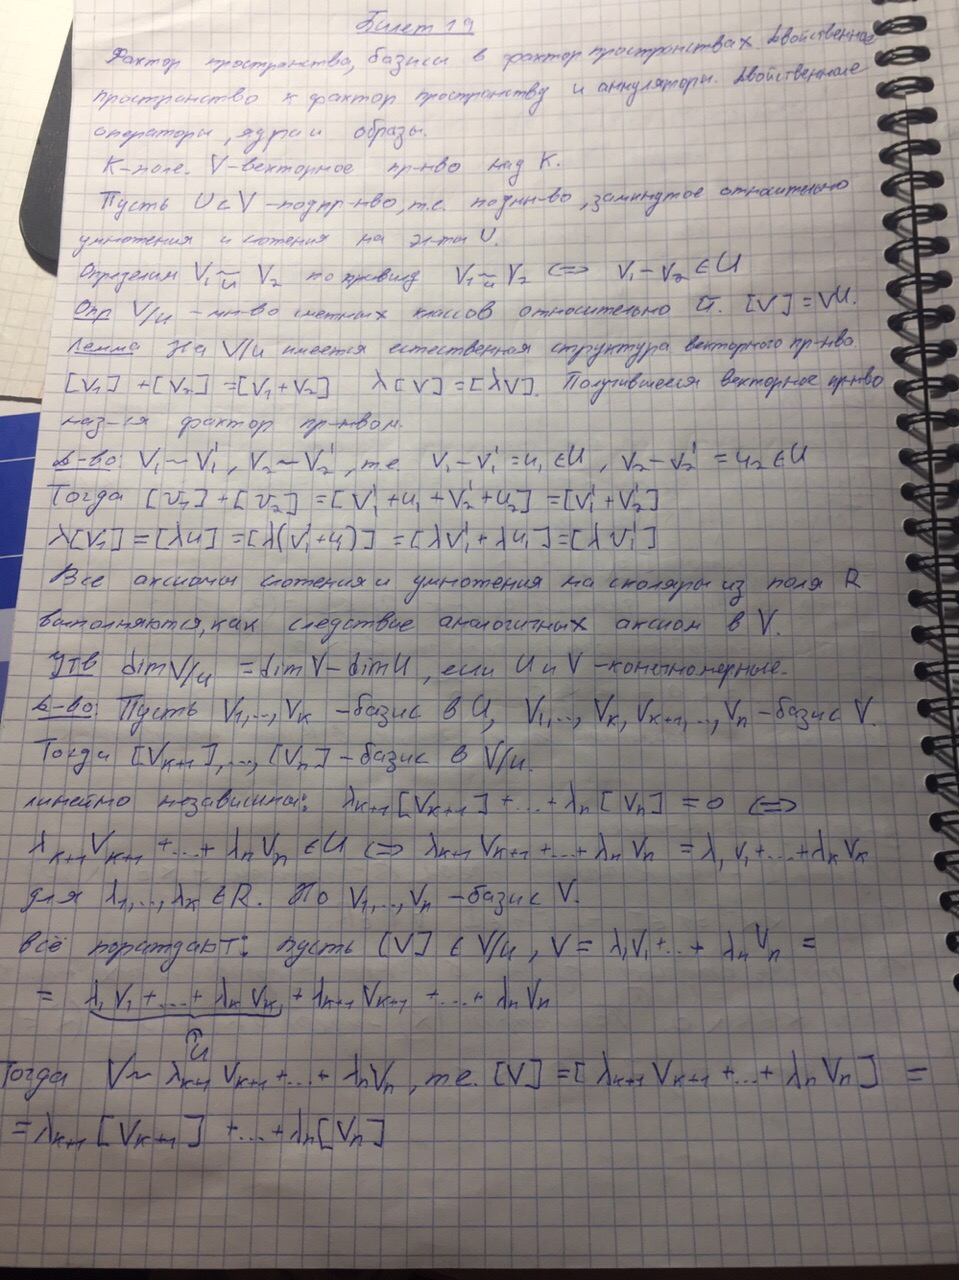 Билет 19
Фактор пространства, базисы в факторпространствах. Двойственное
пространство к фактор пространству и аннуляторы. Двойственные
операторы, ядра и образы.
K-поле. V-векторное пр-нво над K.
Пусть U⊂V -подпр-нво, т.е. подмн-во, замкнутое относительно
умножения и сложения на эл-ты U.
Определим V₁ ~ᵤ V₂ по правилу V₁ ~ᵤ V₂ <=> V₁-V₂ ∈ U
Опр V/u -мн-во смежных классов относительно U. [V]=VU.
Лемма На V/u имеется естественная структура векторного пр-нва.
[V₁]+[V₂]=[V₁+V₂] λ[V]=[λV]. Получившееся векторное пр-нво
наз-ся фактор пр-нвом.
Д-во: V₁~V₁', V₂~V₂', т.е. V₁-V₁'=u₁∈U, V₂-V₂'=u₂∈U
Тогда [V₁]+[V₂]=[V₁'+u₁+V₂'+u₂]=[V₁'+V₂']
λ[V₁]=[λu]=[λ(V₁'+u)]=[λV₁'+λu₁]=[λV₁']
Все аксиомы сложения и умножения на скаляры из поля R
выполняются, как следствие аналогичных аксиом в V.
Утв dimV/u = dimV-dimU, если U и V -конечномерные.
Д-во: Пусть V₁,..,Vₖ -базис в U, V₁,..,Vₖ,Vₖ₊₁,..,Vₙ -базис V.
Тогда [Vₖ₊₁],..,[Vₙ] -базис в V/u.
линейно независимы: λₖ₊₁[Vₖ₊₁]+...+λₙ[Vₙ]=0 <=>
λₖ₊₁Vₖ₊₁+...+λₙVₙ ∈ U <=> λₖ₊₁Vₖ₊₁+...+λₙVₙ = λ₁V₁+...+λₖVₖ
для λ₁,..,λₖ∈R. Но V₁,..,Vₙ -базис V.
всё пораждают: пусть [V]∈V/u, V=λ₁V₁+...+λₙVₙ =
= λ₁V₁+...+λₖVₖ+λₖ₊₁Vₖ₊₁+...+λₙVₙ
∈ U
Тогда V~λₖ₊₁Vₖ₊₁+...+λₙVₙ, т.е. [V]=[λₖ₊₁Vₖ₊₁+...+λₙVₙ] =
=λₖ₊₁[Vₖ₊₁]+...+λₙ[Vₙ]